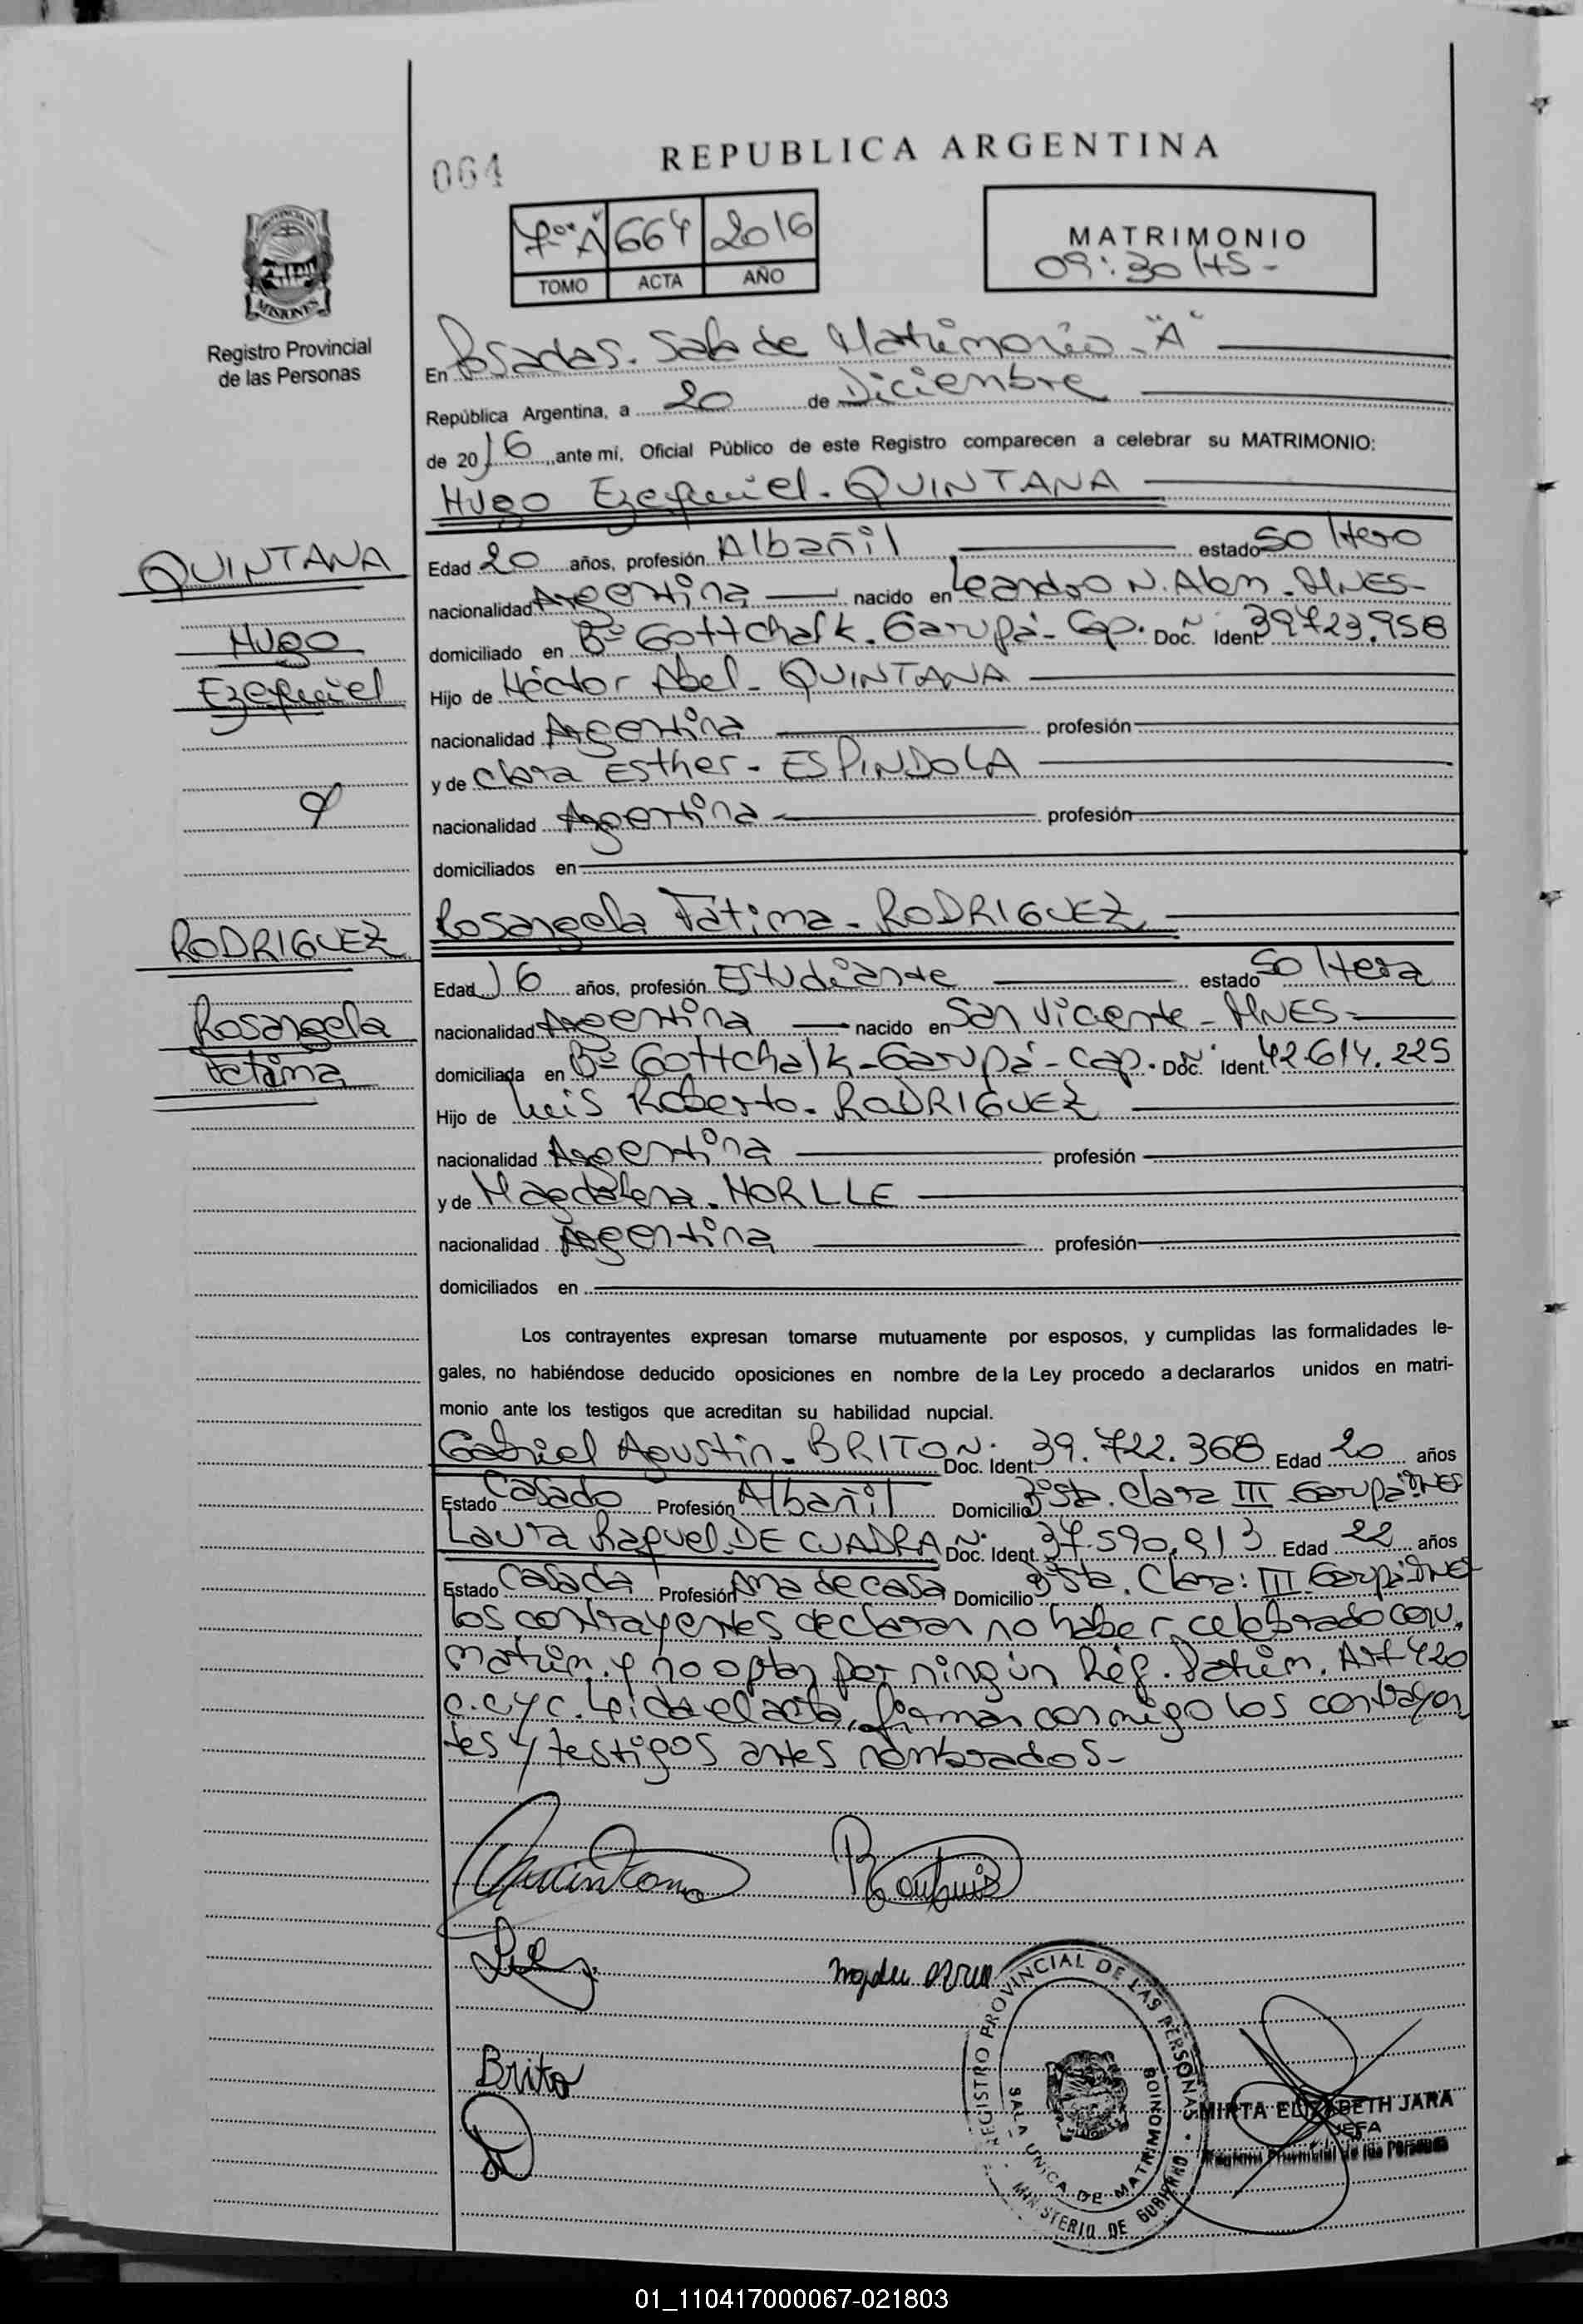 064
REPUBLICA ARGENTINA
7º "A" 664 2016
TOMO ACTA AÑO
MATRIMONIO
09:30 HS-
MISIONES
Registro Provincial
de las Personas
En Posadas. Sala de Matrimonio - "A"
República Argentina, a 20 de Diciembre
de 2016, ante mí, Oficial Público de este Registro comparecen a celebrar su MATRIMONIO:
Hugo Ezequiel - QUINTANA
QUINTANA
Hugo
Ezequiel
Edad 20 años, profesión Albañil estado Soltero
nacionalidad Argentina nacido en Leandro N. Alem. MNES-
domiciliado en Bº Gottchalk. Garupá - Cap. Doc. Ident. Nº 39.723.958
Hijo de Héctor Abel - QUINTANA
nacionalidad Argentina profesión
y de Clara Esther - ESPINDOLA
nacionalidad Argentina profesión
domiciliados en
y
RODRIGUEZ
Rosangela
Fátima
Rosangela Fátima - RODRIGUEZ
Edad 16 años, profesión Estudiante estado Soltera
nacionalidad Argentina nacido en San Vicente - MNES -
domiciliada en Bº Gottchalk - Garupá - Cap. Doc. Ident. Nº 42.614.225
Hijo de Luis Roberto - RODRIGUEZ
nacionalidad Argentina profesión
y de Magdalena - MORLLE
nacionalidad Argentina profesión
domiciliados en
Los contrayentes expresan tomarse mutuamente por esposos, y cumplidas las formalidades le-
gales, no habiéndose deducido oposiciones en nombre de la Ley procedo a declararlos unidos en matri-
monio ante los testigos que acreditan su habilidad nupcial.
Gabriel Agustín - BRITO Nº Doc. Ident. 39.722.368 Edad 20 años
Estado Casado Profesión Albañil Domicilio Bº Sta. Clara III Garupá MNES
Laura Raquel DE CUADRA Nº Doc. Ident. 37.590.913 Edad 22 años
Estado Casada Profesión Ama de casa Domicilio Bº Sta. Clara: III. Garupá MNES
Los contrayentes declaran no haber celebrado conv.
matrim. y no optan por ningún Rég. Patrim. Art 420
C.C y C. Leída el acta, firman conmigo los contrayen
tes y testigos antes nombrados -
Quintana
Brito
REGISTRO PROVINCIAL DE LAS PERSONAS
SALA UNICA DE MATRIMONIOS
MINISTERIO DE GOBIERNO
MIRTA ELIZABETH JARA
JEFA
Registro Provincial de las Personas
01_110417000067-021803